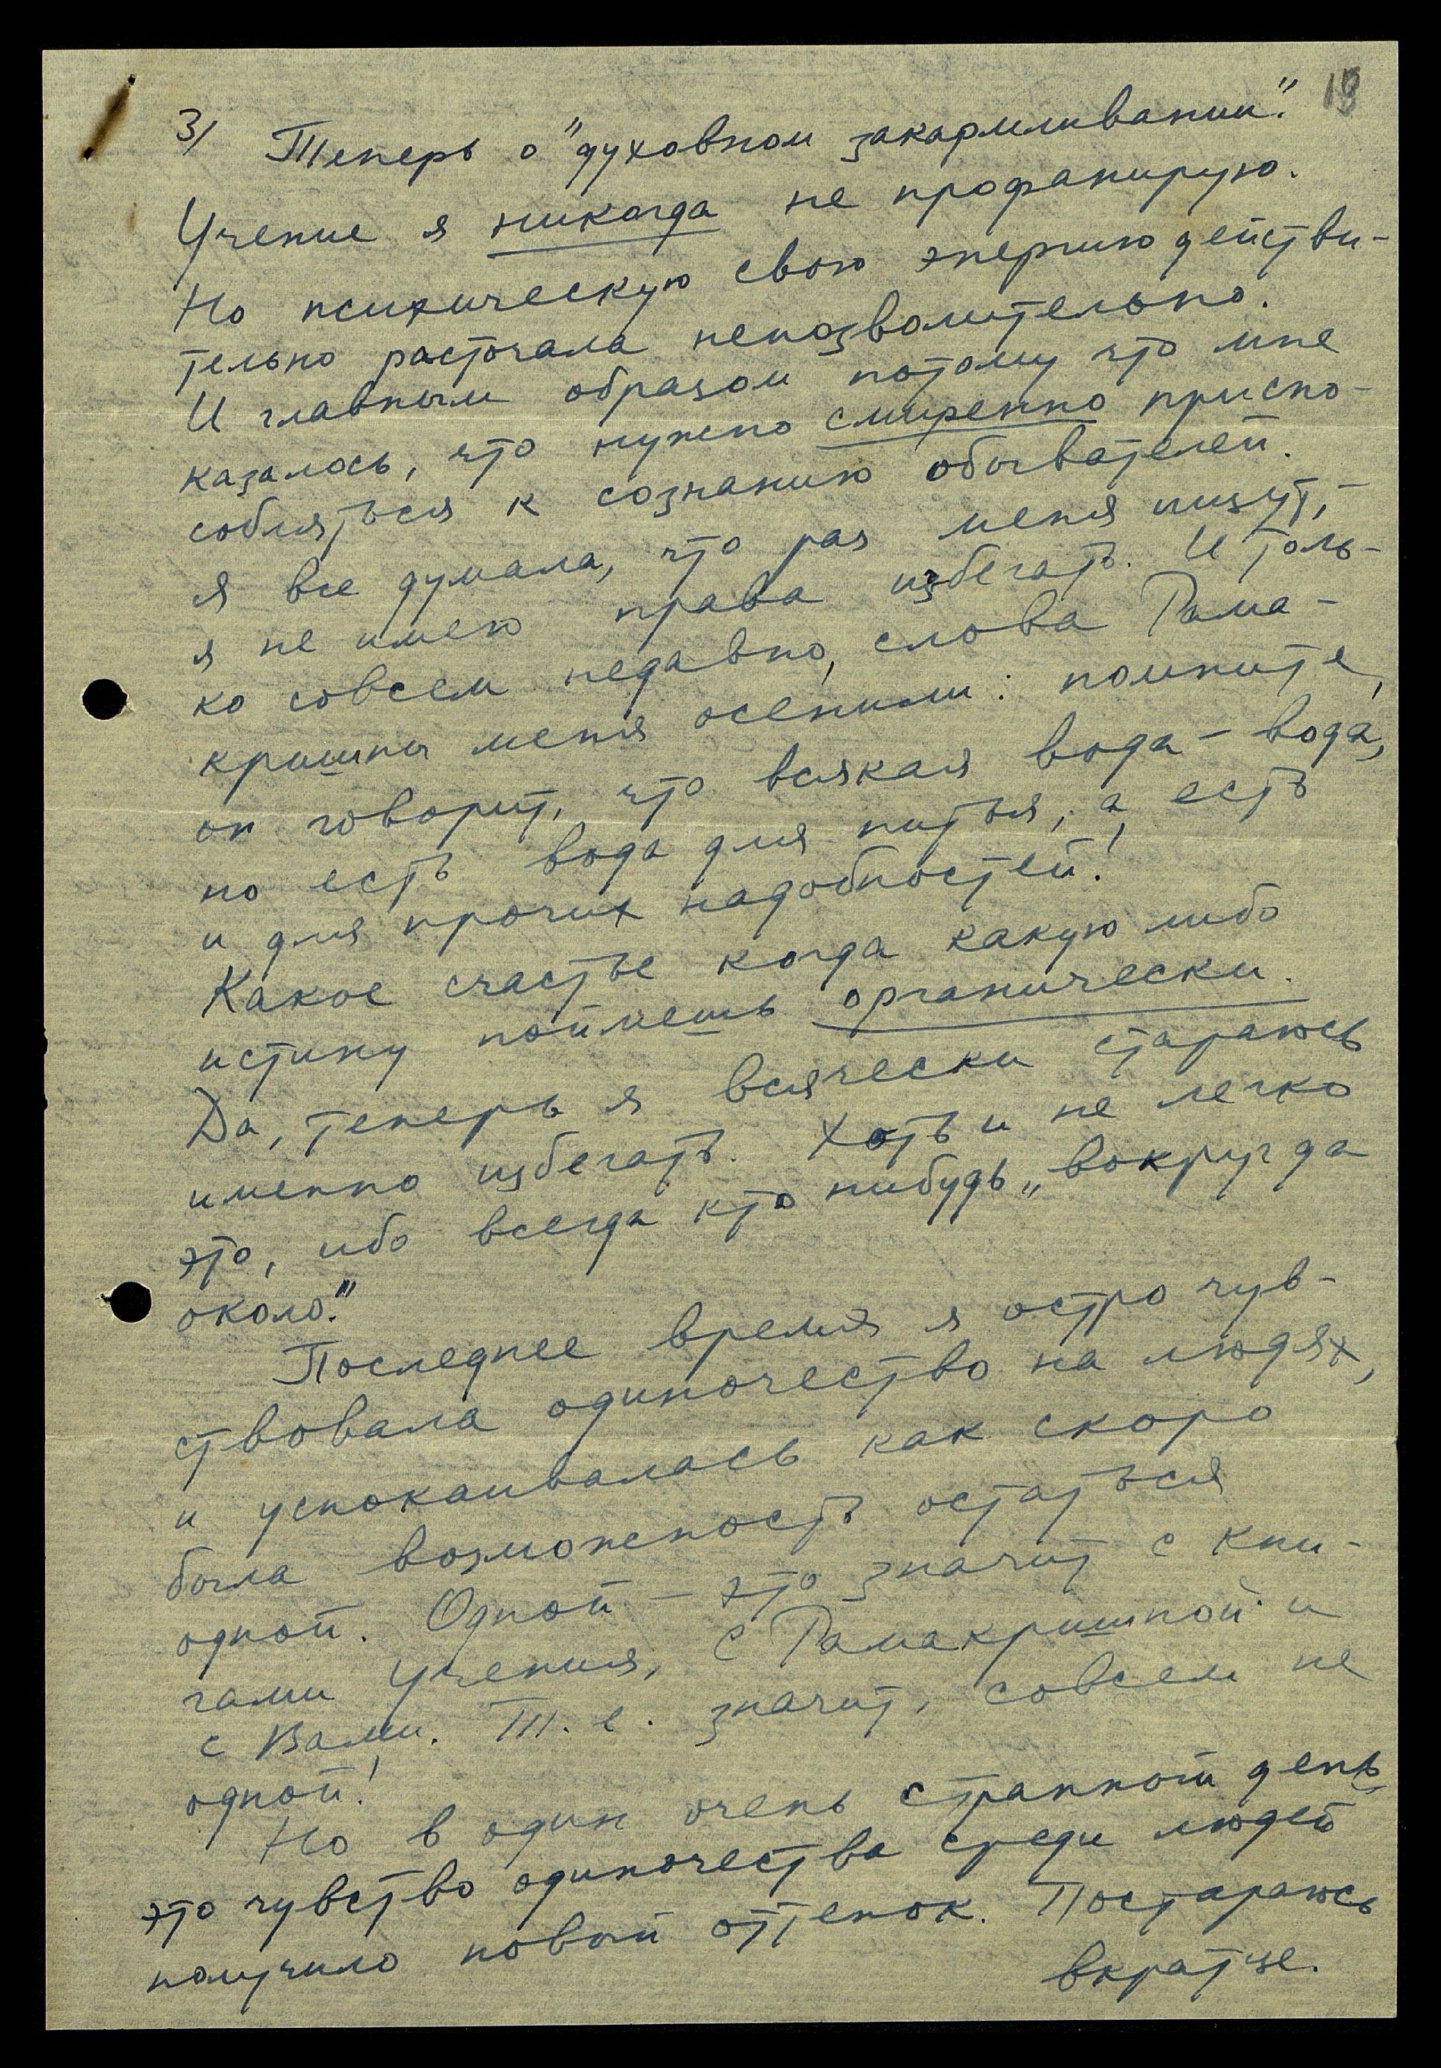 19
3/ Теперь о "духовном закармливании".
Учение я никогда не профанирую.
Но психическую свою энергию действи-
тельно расточала непозволительно.
И главным образом потому что мне
казалось, что нужно смиренно приспо-
собляться к сознанию обывателей.
Я все думала, что раз меня ищут, -
я не имею права избегать. И толь-
ко совсем недавно, слова Рама-
кришны меня осенили: помните,
он говорит, что всякая вода - вода,
но есть вода для питья, а есть
и для прочих надобностей!
Какое счастье когда какую либо
истину поймешь органически.
Да, теперь я всячески стараюсь
именно избегать. Хоть и не легко
это, ибо всегда кто нибудь „вокруг да
около."
Последнее время я остро чув-
ствовала одиночество на людях,
и успокаивалась как скоро
была возможность остаться
одной. Одной - это значит с кни-
гами Учения, с Рамакришной и
с Вами. Т.е. значит, совсем не
одной!
Но в один очень странный день
это чувство одиночества среди людей
получило новый оттенок. Постараюсь
вкратце.